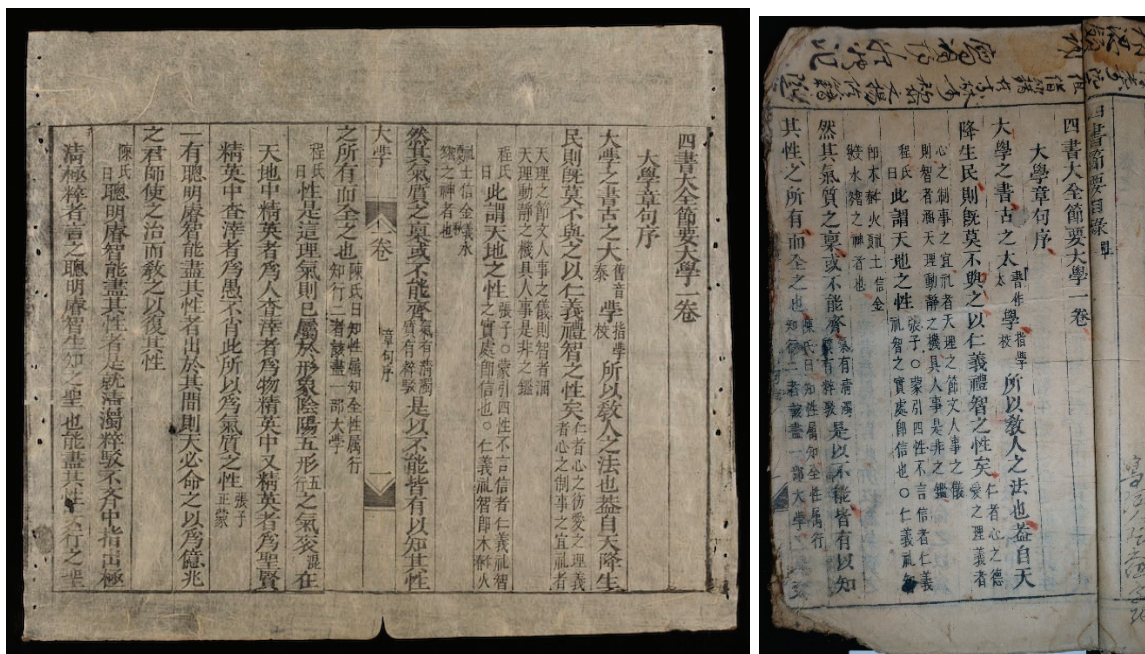 四書大全節要大學一卷
大學章句序
大學之書古之大舊音泰學指學校所以教人之法也蓋自天降生
民則既莫不與之以仁義禮智之性矣仁者心之德愛之理義者心之制事之宜礼者
天理之節文人事之儀則智者涵天理動靜之機具人事是非之鑑
程氏曰此謂天地之性張子〇蒙引四性不言信者仁義礼智之實處即信也〇仁義礼智即木神火
神土信金義水智之神者也
然其氣質之禀或不能齊氣有清濁質有粹駁是以不能皆有以知其性
大學
一卷
章句序
一
之所有而全之也陳氏曰知性属知全性属行知行二者該盡一部大學
程氏曰性是這理氣則已屬於形象陰陽五形五行之氣衮混在
天地中精英者爲人查滓者爲物精英中又精英者爲聖賢
精英中查滓者爲愚不肖此所以爲氣質之性張子正蒙
一有聰明睿智能盡其性者出於其間則天必命之以爲億兆
之君師使之治而教之以復其性
陳氏曰聰明睿智能盡其性者是就清濁粹駁不齐中指出極
清極粹者言之聰明睿智生知之聖也能盡其性安行之聖
四書節要目錄
四書大全節要大學一卷
大學章句序
大學之書古之大書作太學指學校所以教人之法也蓋自天
降生民則既莫不與之以仁義禮智之性矣仁者心之德愛之理義者
心之制事之宜礼者天理之節文人事之儀則智者涵天理動靜之機具人事是非之鑑
程氏曰此謂天地之性張子〇蒙引四性不言信者仁義礼智之實處即信也〇仁義礼智
即木神火神土信金義水智之神者也
然其氣質之禀或不能齊氣有清濁質有粹駁是以不能皆有以知
其性之所有而全之也陳氏曰知性属知全性属行知行二者該盡一部大學